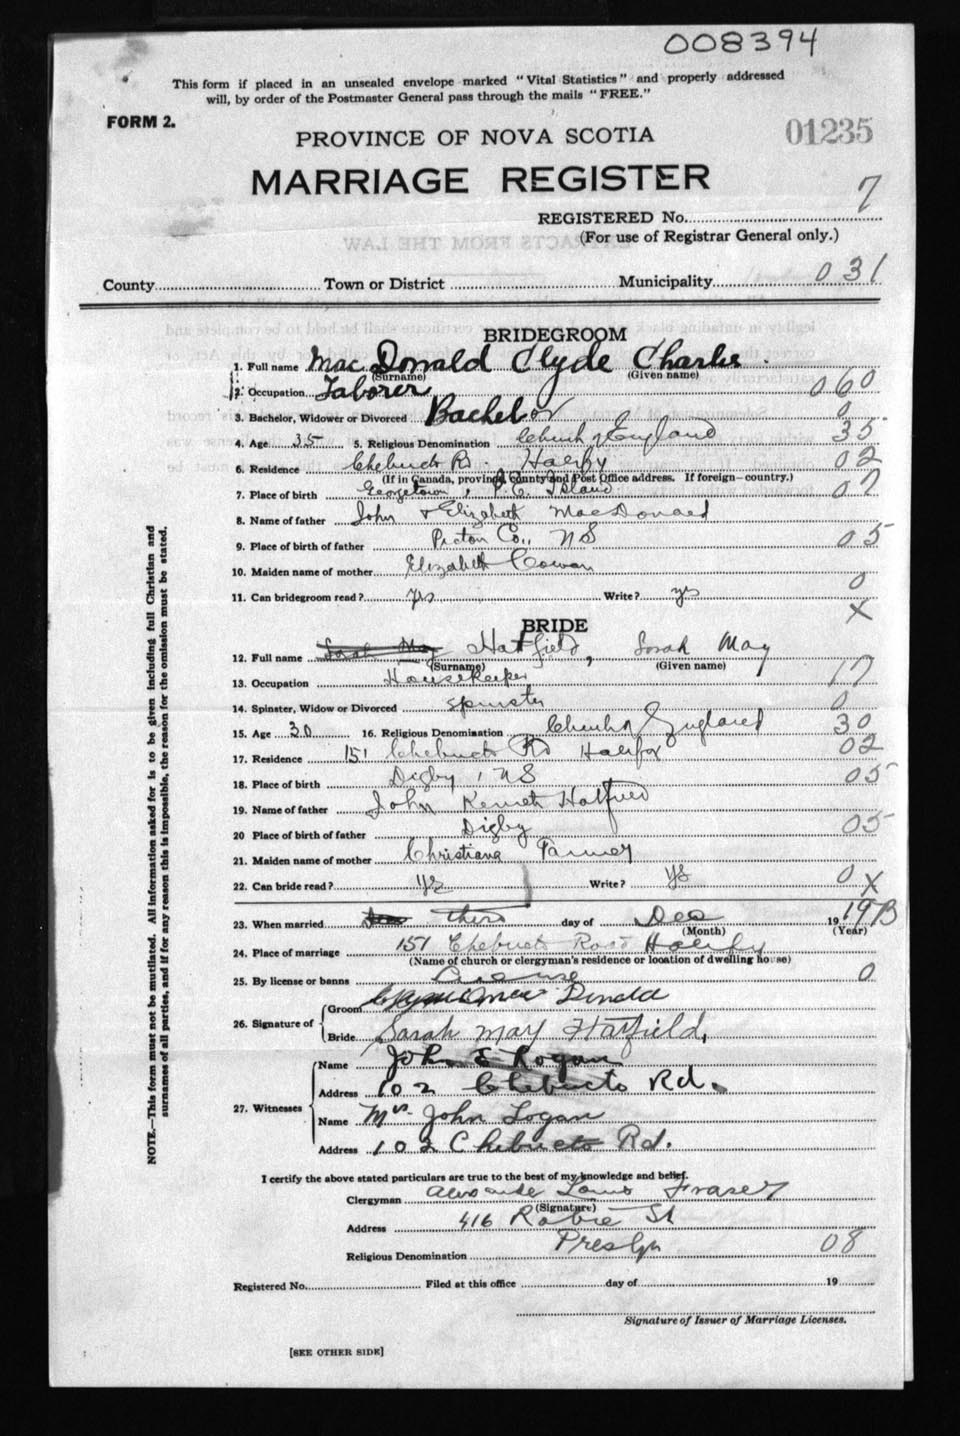 008394
This form if placed in an unsealed envelope marked "Vital Statistics" and properly addressed
will, by order of the Postmaster General pass through the mails "FREE."
FORM 2.
PROVINCE OF NOVA SCOTIA
01235
MARRIAGE REGISTER
REGISTERED No. 7
(For use of Registrar General only.)
County Town or District Municipality 031
BRIDEGROOM
1. Full name MacDonald Clyde Charles
(Surname) (Given name)
2. Occupation Laborer 060
3. Bachelor, Widower or Divorced Bachelor 0
4. Age 35 5. Religious Denomination Church of England 35
6. Residence Chebucto Rd. Halifax 02
(If in Canada, province, county and Post Office address. If foreign—country.)
7. Place of birth Georgetown, P.E. Island 07
8. Name of father John & Elizabeth MacDonald
9. Place of birth of father Pictou Co., NS 05
10. Maiden name of mother Elizabeth Cowan
11. Can bridegroom read? yes Write? yes 0
X
BRIDE
12. Full name Sarah May Hatfield, Sarah May
(Surname) (Given name)
13. Occupation Housekeeper 17
14. Spinster, Widow or Divorced spinster 0
15. Age 30 16. Religious Denomination Church of England 30
17. Residence 151 Chebucto Rd Halifax 02
18. Place of birth Digby, NS 05
19. Name of father John Kenneth Hatfield
20 Place of birth of father Digby 05
21. Maiden name of mother Christiana
22. Can bride read? yes Write? yes 0 X
23. When married third day of Dec 19
(Month) (Year)
24. Place of marriage 151 Chebucto Road Halifax
(Name of church or clergyman's residence or location of dwelling house)
25. By license or banns License 0
26. Signature of Groom MacDonald
Bride Sarah May Hatfield,
27. Witnesses Name John E Logan
Address 102 Chebucto Rd.
Name Mrs. John Logan
Address 102 Chebucto Rd.
I certify the above stated particulars are true to the best of my knowledge and belief.
Clergyman Fraser
(Signature)
Address 416 Robie St
Religious Denomination Presbyn 08
Registered No. Filed at this office day of 19
Signature of Issuer of Marriage Licenses.
[SEE OTHER SIDE]
NOTE.—This form must not be mutilated. All information asked for is to be given including full Christian and
surnames of all parties, and if for any reason this is impossible, the reason for the omission must be stated.